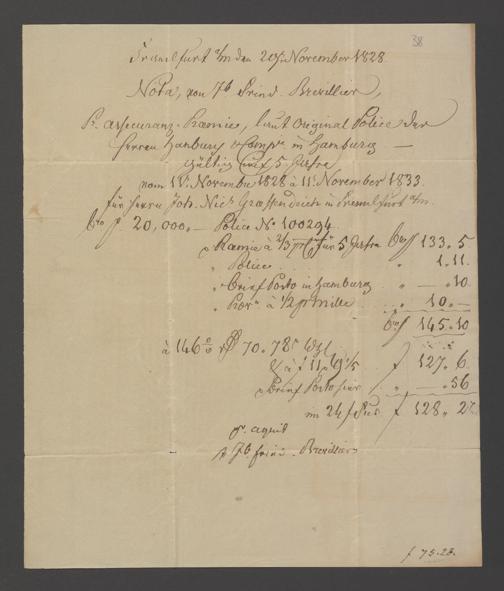 38
Frankfurt a/m den 20n November 1828
Nota, von Jb. Fried. Brevillier,
Pr. assecuranz-Prämie, laut Original Police der
Herren Hanbury & Compe in Hamburg —
gültig auf 5 Jahre
vom 11n November 1828 à 11n November 1833.
für Herrn Joh. Nics in Frankfurt a/m.
20,000.— Police No 100294
Prämie à 2/3 für 5 Jahre 133.5
" Police " 1.11.
" brief Porto in Hamburg " —.10
" à 1/2 pr mille " 10.—
145.10
à 146 70.78
à f 11 f 127.6
" brief Porto hier " —.56
im 24 f f 128.2
pr. aquit
Jb. fried. Brevillier
f 75.28.